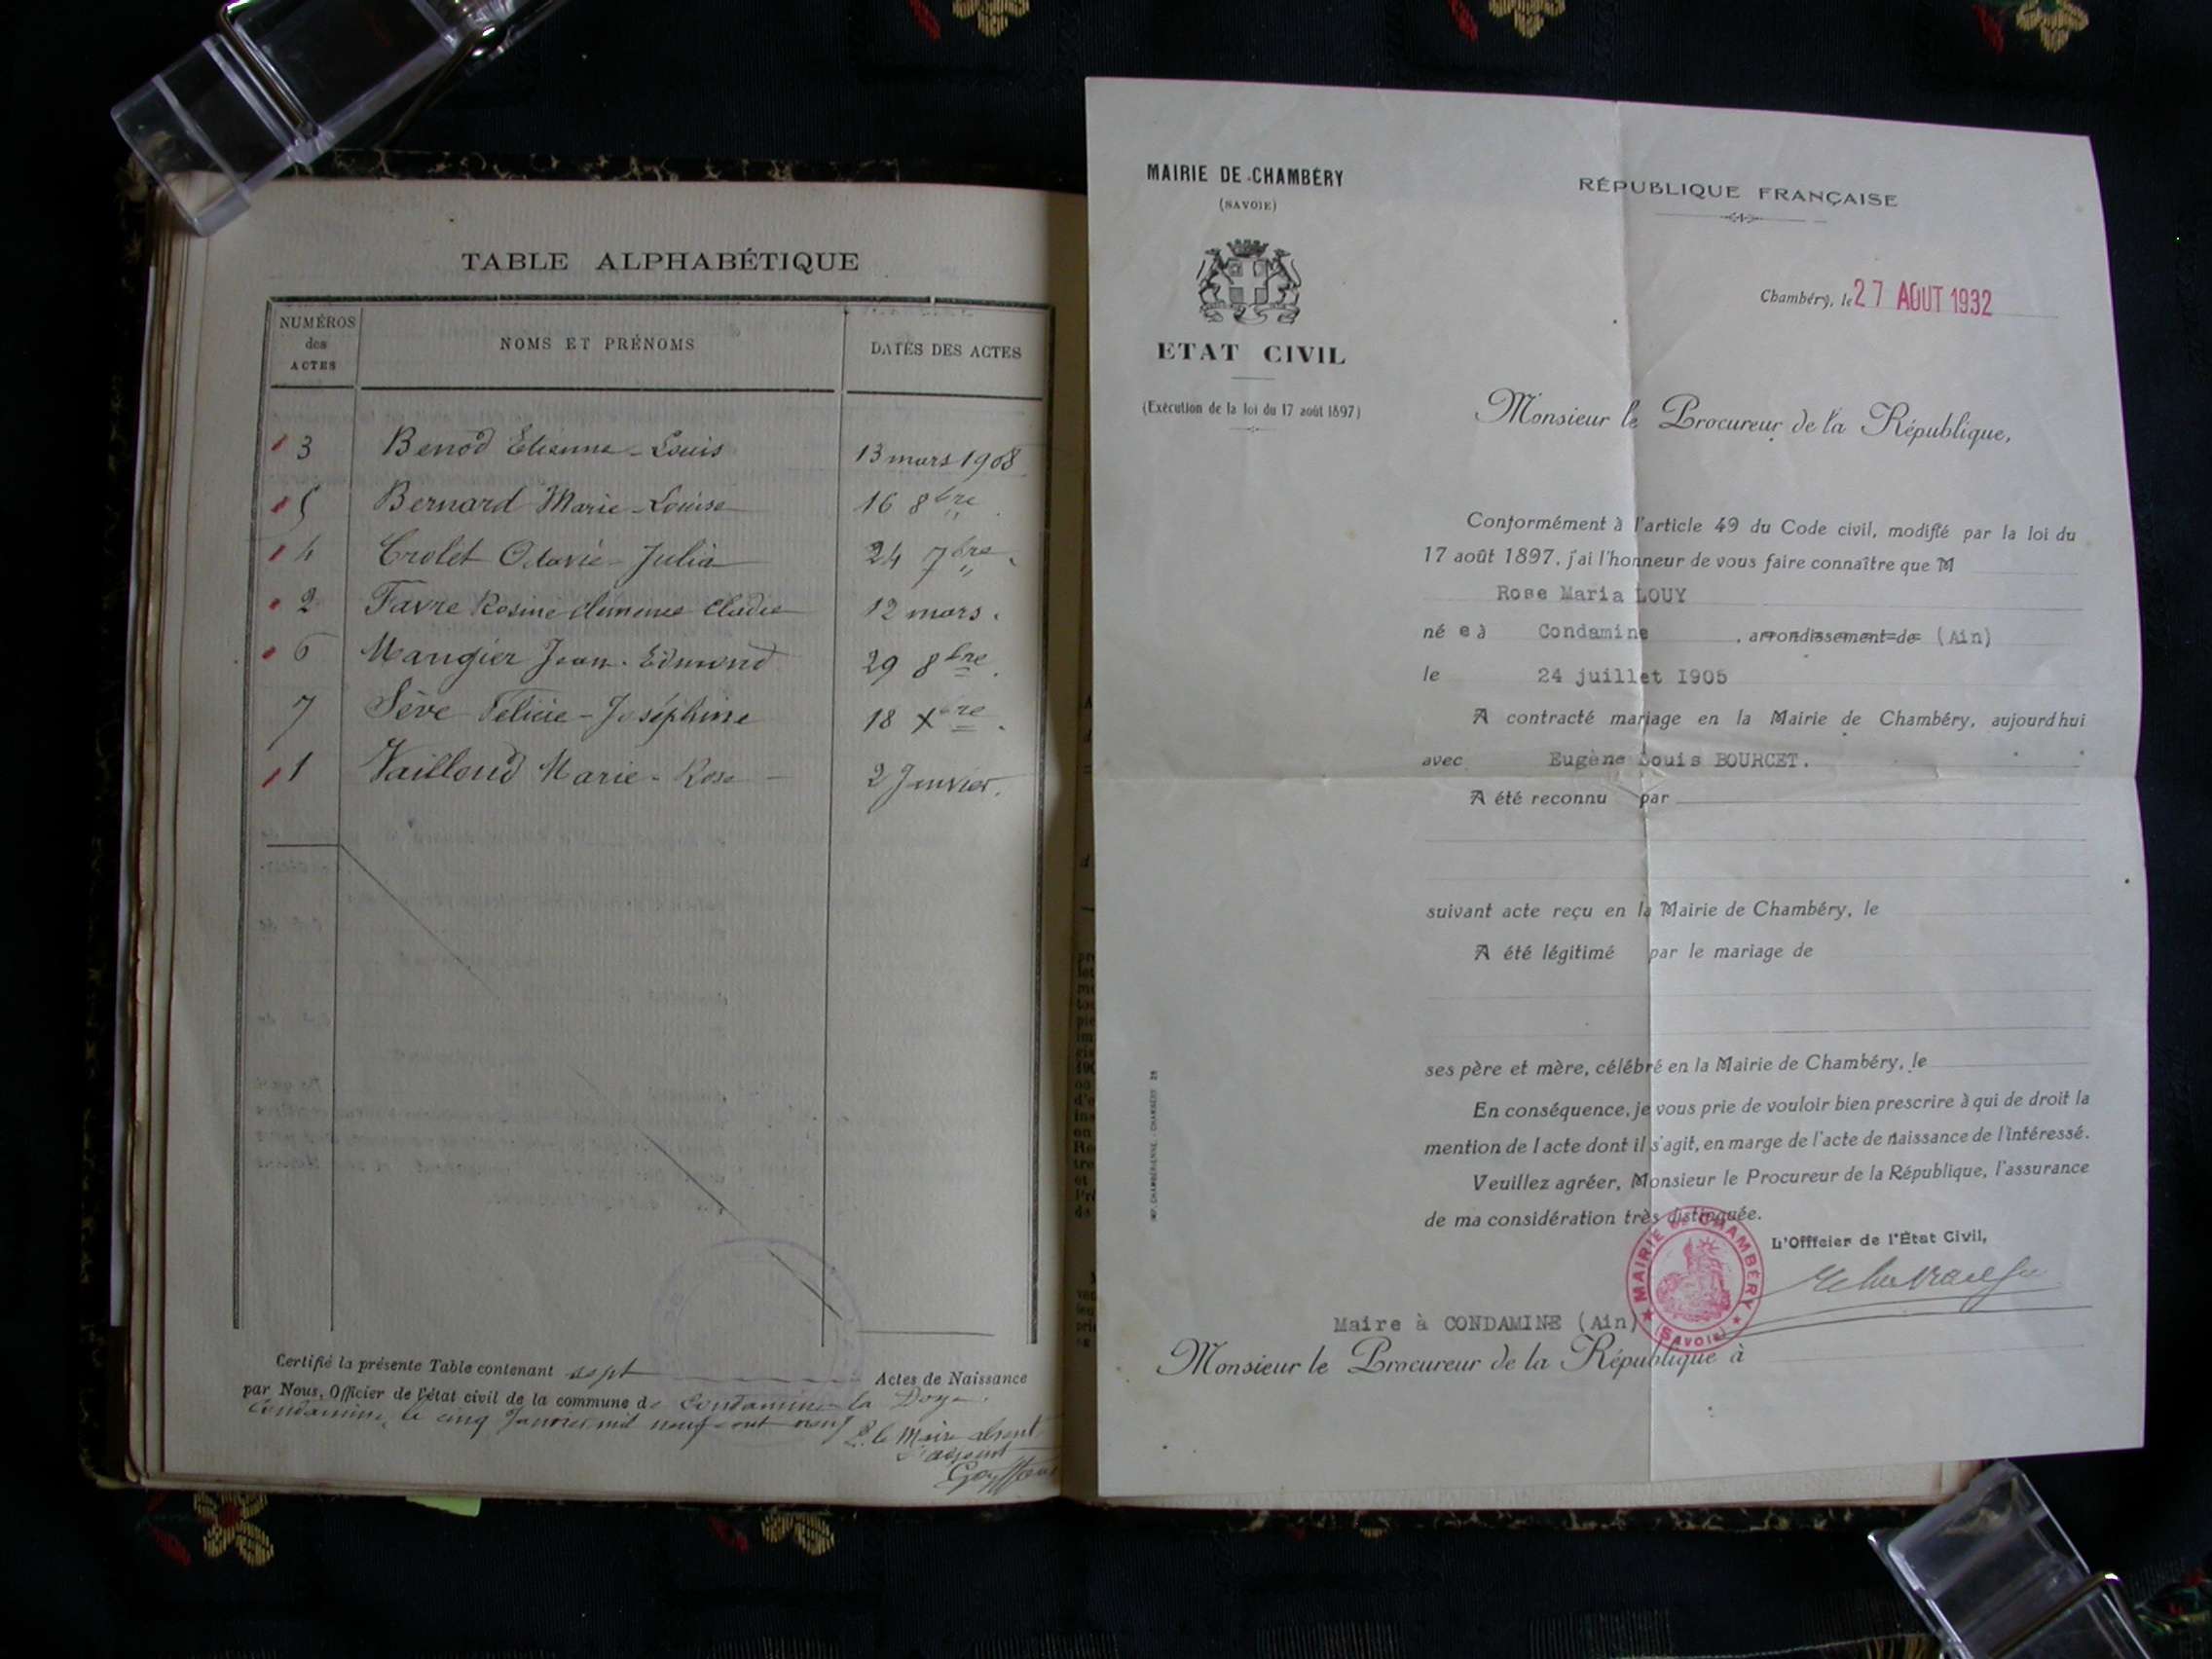 TABLE ALPHABÉTIQUE
NUMÉROS des ACTES
NOMS ET PRÉNOMS
DATES DES ACTES
3 Benod Etienne-Louis 13 mars 1908
5 Bernard Marie-Louise 16 8bre
4 Crolet Octavie-Julia 24 7bre
2 Favre Rosine Clémence 12 mars.
6 Mangier Jean-Edmond 29 8bre.
7 Sève Félicie-Joséphine 18 Xbre.
1 Vailloud Marie-Rose 2 Janvier.
Certifié la présente Table contenant sept Actes de Naissance
par Nous, Officier de l'état civil de la commune de Condamine la Doye
Condamine, le cinq Janvier mil neuf cent neuf
P. le Maire absent
L'adjoint
MAIRIE DE CHAMBÉRY
(SAVOIE)
ETAT CIVIL
(Exécution de la loi du 17 août 1897)
RÉPUBLIQUE FRANÇAISE
Chambéry, le 27 AOUT 1932
Monsieur le Procureur de la République,
Conformément à l'article 49 du Code civil, modifié par la loi du
17 août 1897, j'ai l'honneur de vous faire connaître que M
Rose Maria LOUY
né e à Condamine, arrondissement de (Ain)
le 24 juillet I905
A contracté mariage en la Mairie de Chambéry, aujourd'hui
avec Eugène Louis BOURCET.
A été reconnu par
suivant acte reçu en la Mairie de Chambéry, le
A été légitimé par le mariage de
ses père et mère, célébré en la Mairie de Chambéry, le
En conséquence, je vous prie de vouloir bien prescrire à qui de droit la
mention de l'acte dont il s'agit, en marge de l'acte de naissance de l'intéressé.
Veuillez agréer, Monsieur le Procureur de la République, l'assurance
de ma considération très distinguée.
L'Officier de l'État Civil,
MAIRIE DE CHAMBÉRY
(SAVOIE)
Maire à CONDAMINE (Ain)
Monsieur le Procureur de la République à
IMP. CHAMBÉRIENNE - CHAMBÉRY